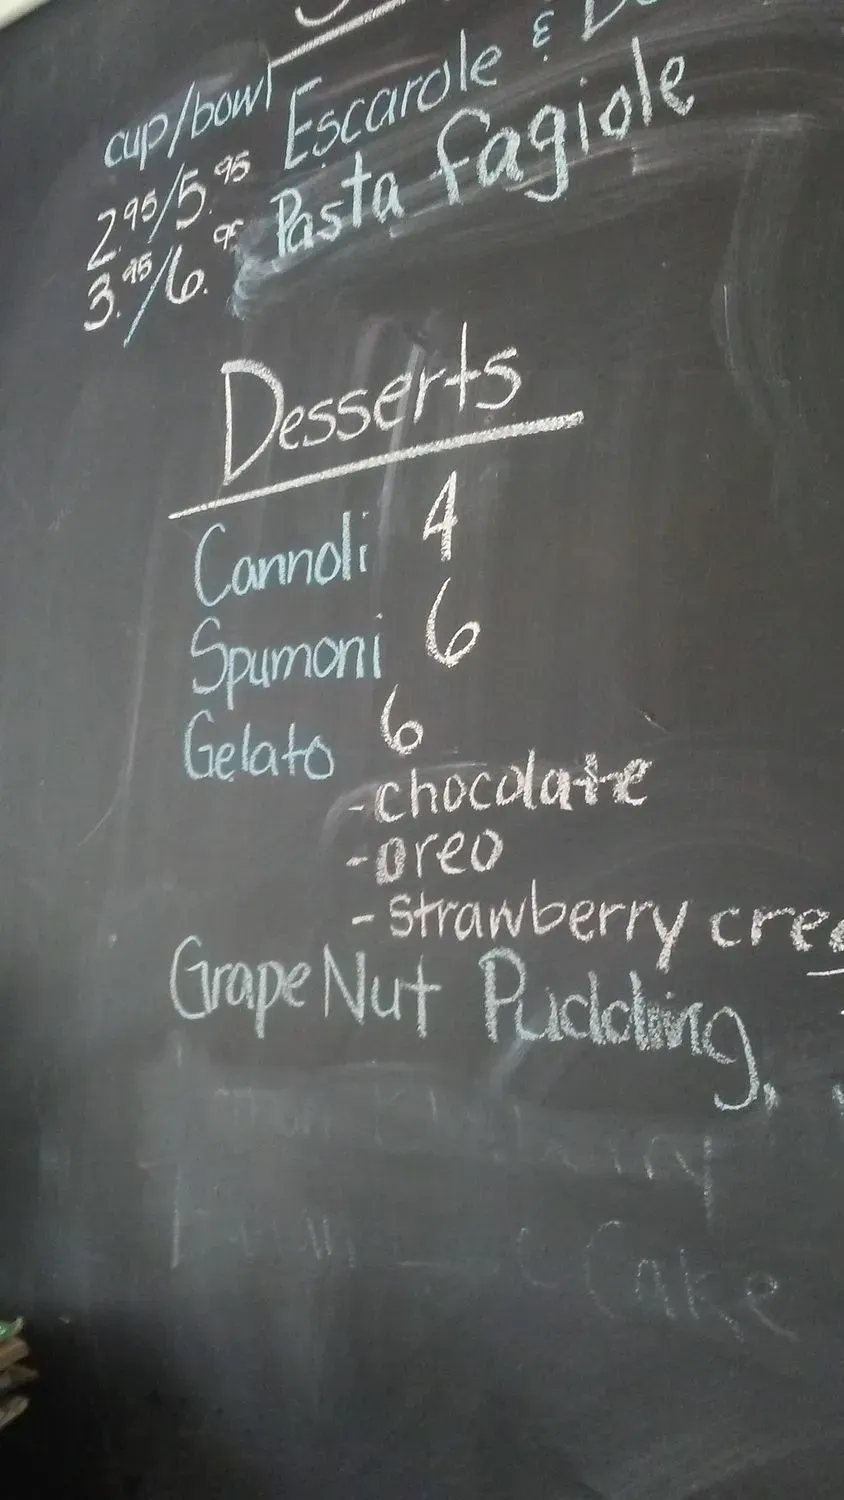 cup/bowl Escarole &
2.95/5.95 Pasta fagiole
3.95/6.95
Desserts
Cannoli 4
Spumoni 6
Gelato 6
-chocolate
-oreo
-strawberry
GrapeNut Pudding,
Cake